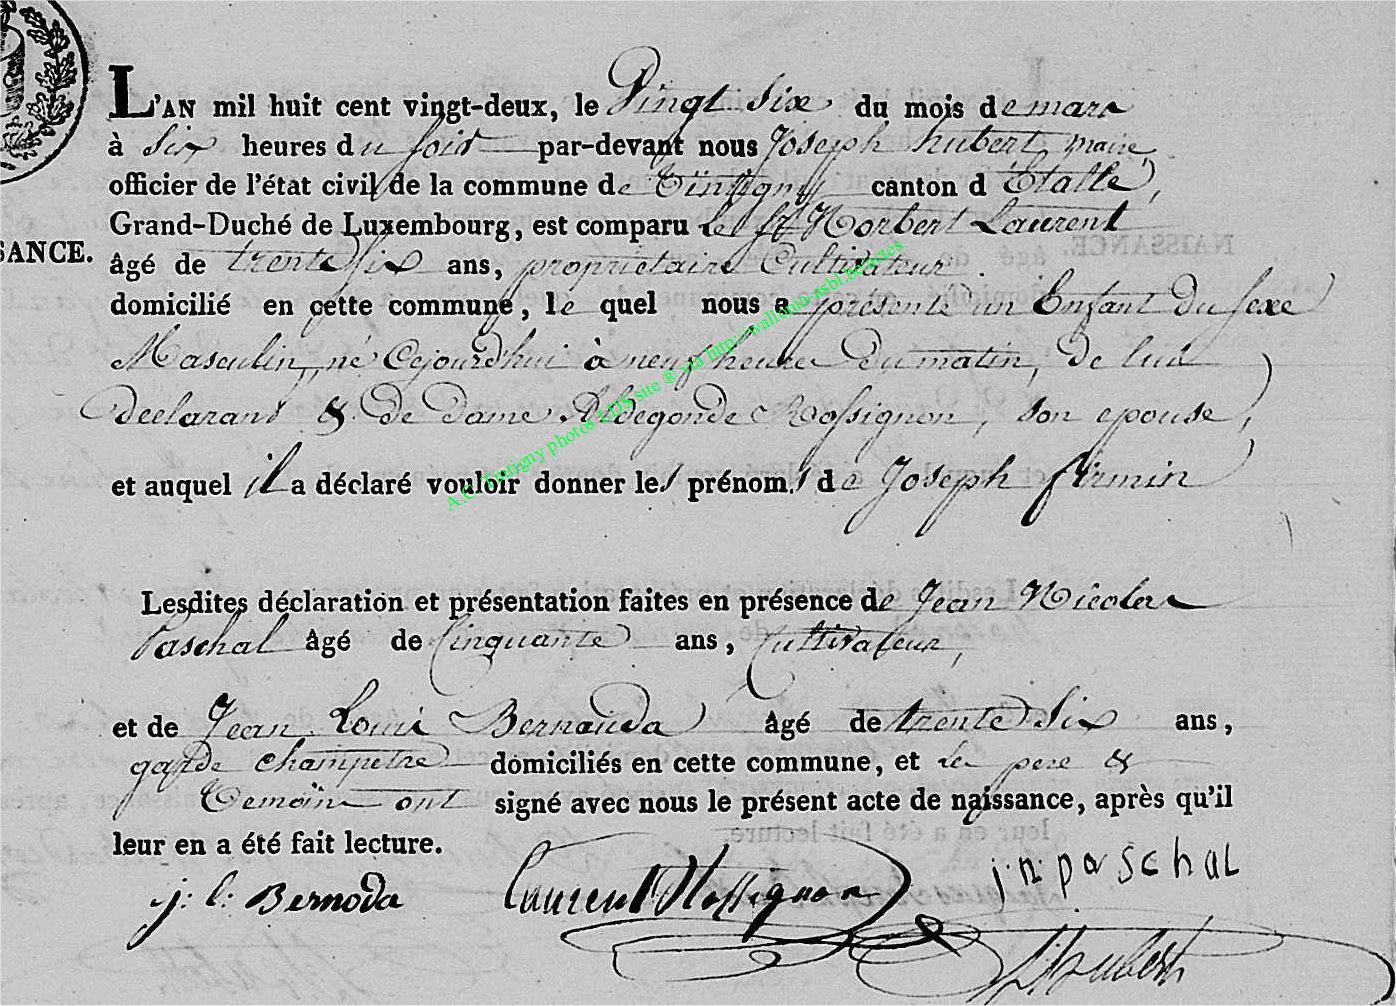 L'AN mil huit cent vingt-deux, le Vingt Six du mois de mars
à Six heures du soir par-devant nous Joseph hubert maire,
officier de l'état civil de la commune de Tintigny canton d'Etalle,
Grand-Duché de Luxembourg, est comparu le Sr Norbert Laurent
SANCE.
âgé de trente six ans, proprietaire Cultivateur
domicilié en cette commune, le quel nous a présenté un Enfant du sexe
Masculin, né Cejourd'hui à neuf heures du matin, de lui
declarant & de Dame Aldegonde Rossignon, son epouse,
et auquel il a déclaré vouloir donner les prénoms de Joseph firmin
A.C. Tintigny photos LDS site ® via http://wallonia-asbl.be/actes
Lesdites déclaration et présentation faites en présence de Jean Nicolas
Paschal âgé de Cinquante ans, Cultivateur,
et de Jean Louis Bernauda âgé de trente Six ans,
garde Champetre domiciliés en cette commune, et les pere &
Temoins ont signé avec nous le présent acte de naissance, après qu'il
leur en a été fait lecture.
j: l: Bernoda Laurent Rossignon j: n: paschal
Hubert